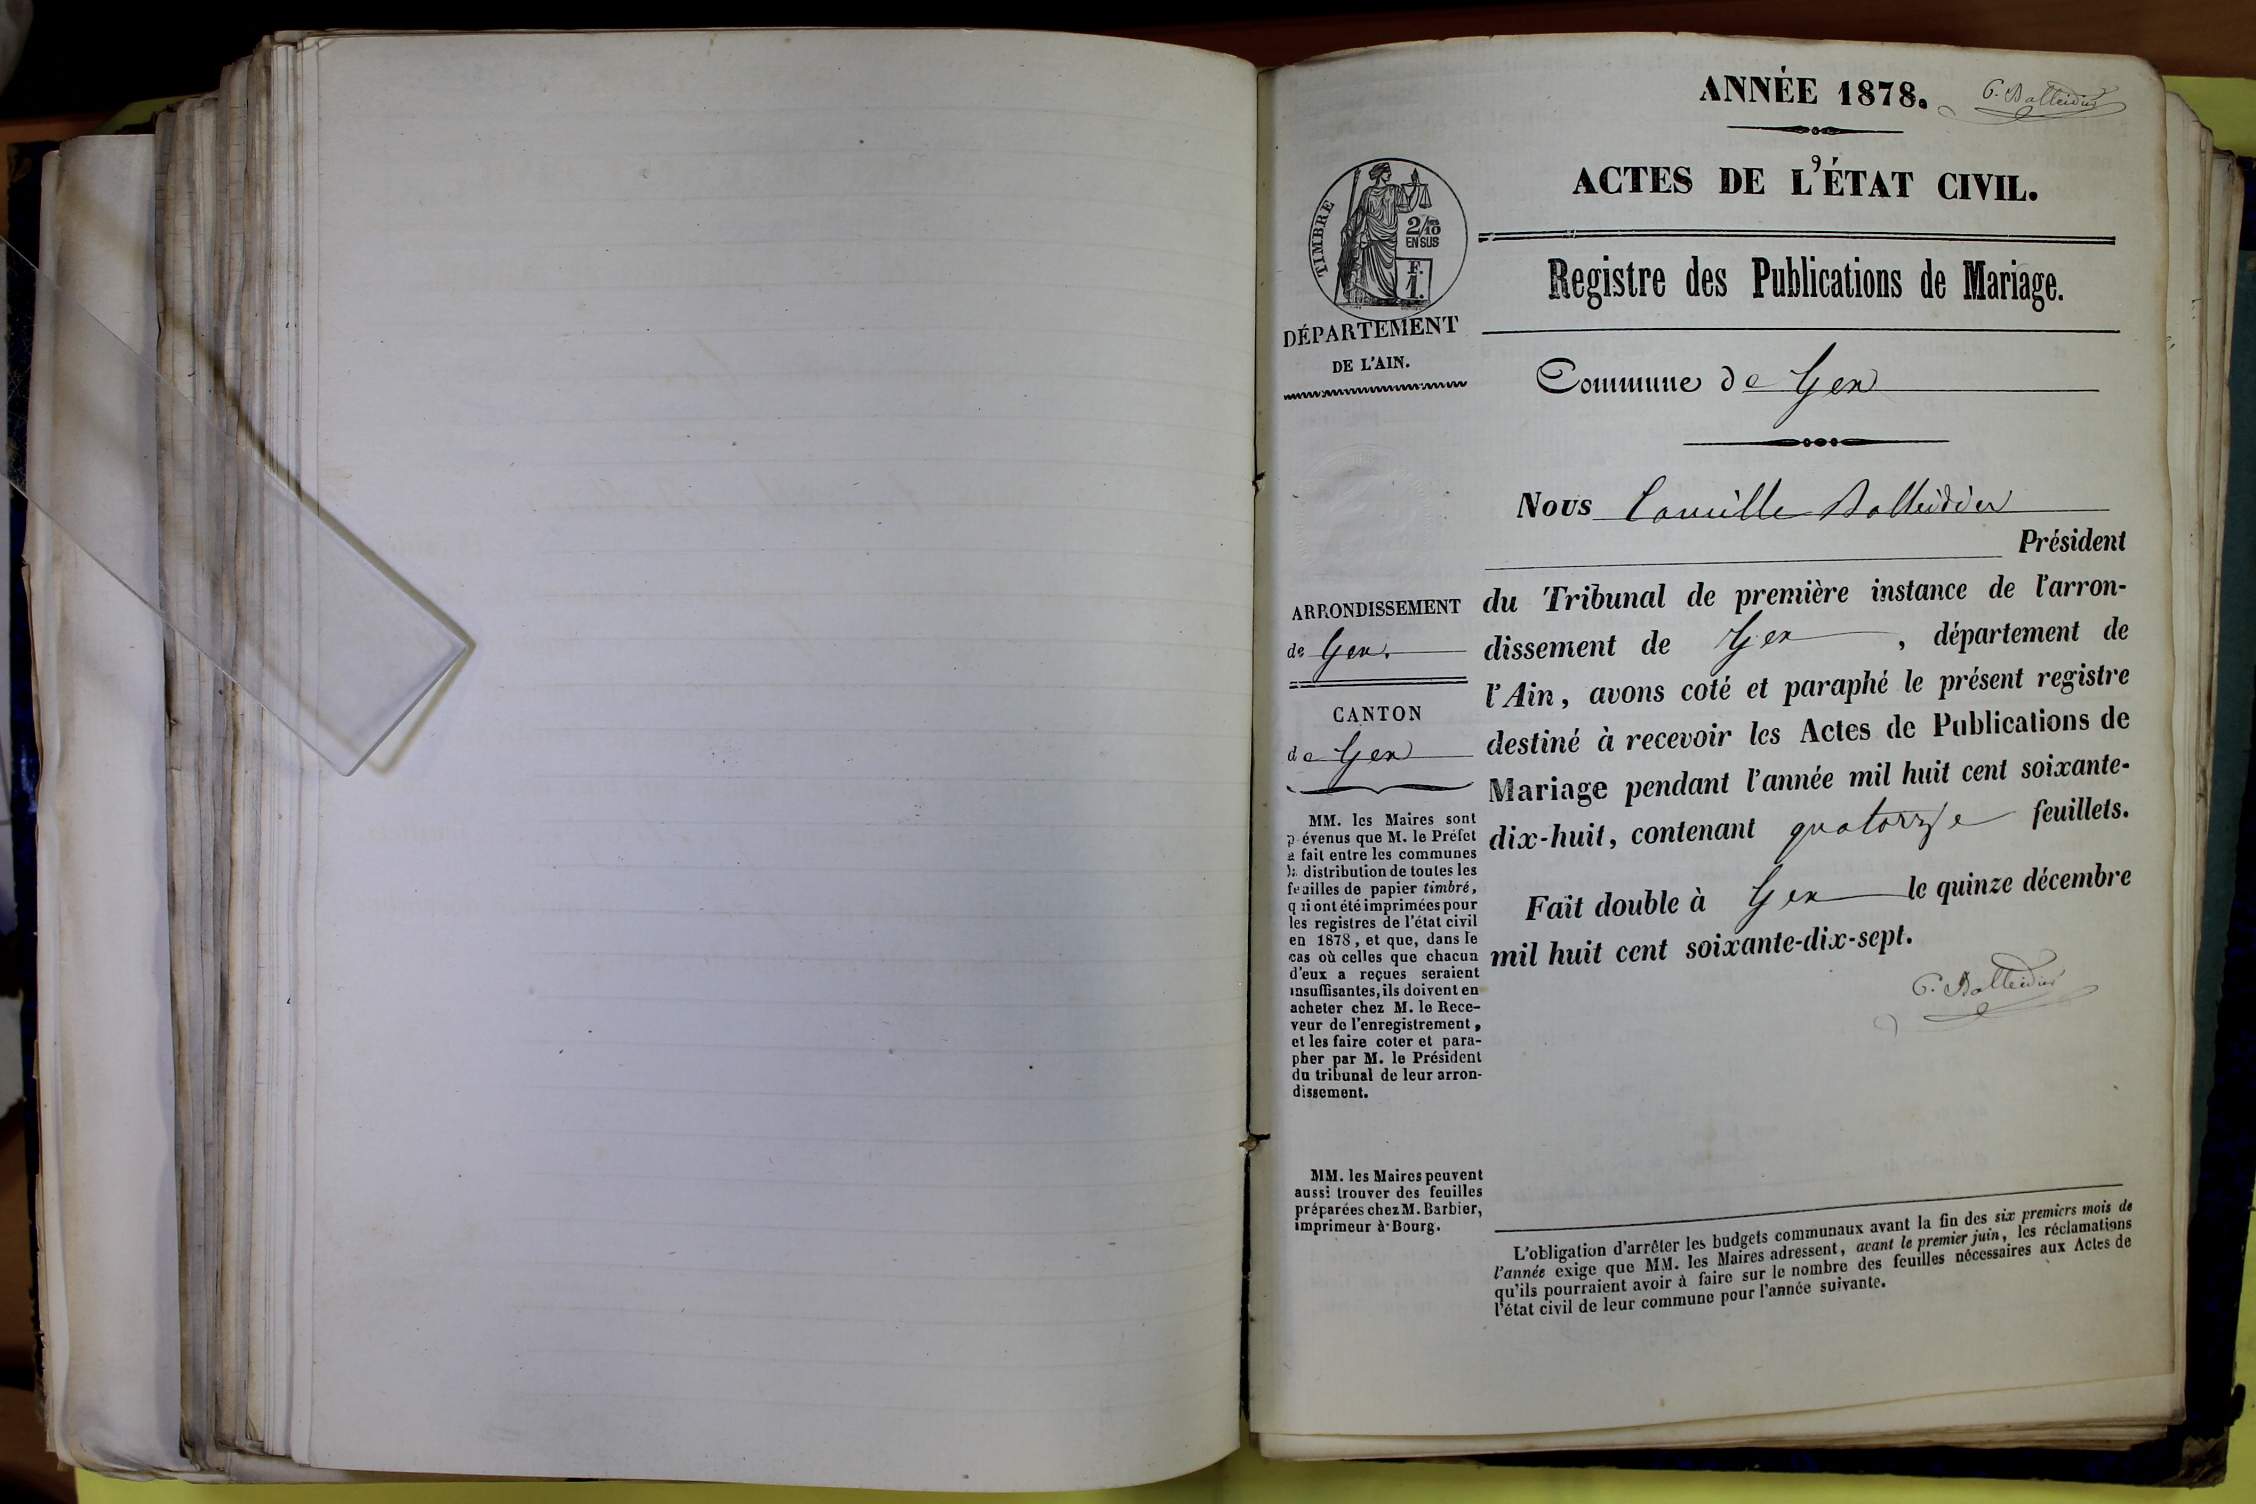 ANNÉE 1878.
C. Balleidier
ACTES DE L'ÉTAT CIVIL.
TIMBRE
2/10
EN SUS
F.
1.
DÉPARTEMENT
DE L'AIN.
Registre des Publications de Mariage.
Commune de Gex
Nous Camille Balleidier
Président
du Tribunal de première instance de l'arron-
dissement de Gex, département de
l'Ain, avons coté et paraphé le présent registre
destiné à recevoir les Actes de Publications de
Mariage pendant l'année mil huit cent soixante-
dix-huit, contenant quatorze feuillets.
Fait double à Gex le quinze décembre
mil huit cent soixante-dix-sept.
C. Balleidier
ARRONDISSEMENT
de Gex.
CANTON
de Gex
MM. les Maires sont
prévenus que M. le Préfet
a fait entre les communes
la distribution de toutes les
feuilles de papier timbré,
qui ont été imprimées pour
les registres de l'état civil
en 1878, et que, dans le
cas où celles que chacun
d'eux a reçues seraient
insuffisantes, ils doivent en
acheter chez M. le Rece-
veur de l'enregistrement,
et les faire coter et para-
pher par M. le Président
du tribunal de leur arron-
dissement.
MM. les Maires peuvent
aussi trouver des feuilles
préparées chez M. Barbier,
imprimeur à Bourg.
L'obligation d'arrêter les budgets communaux avant la fin des six premiers mois de
l'année exige que MM. les Maires adressent, avant le premier juin, les réclamations
qu'ils pourraient avoir à faire sur le nombre des feuilles nécessaires aux Actes de
l'état civil de leur commune pour l'année suivante.